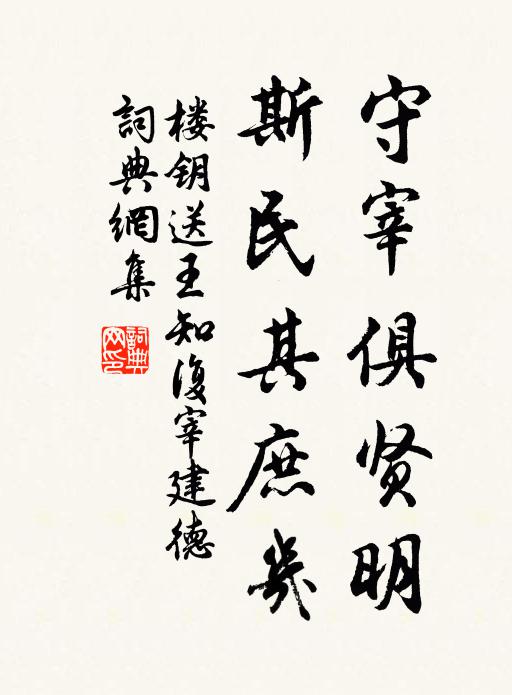 守宰俱贤明
斯民其庶幾
楼钥送王知復宰建德
詞典網集
詞典網印